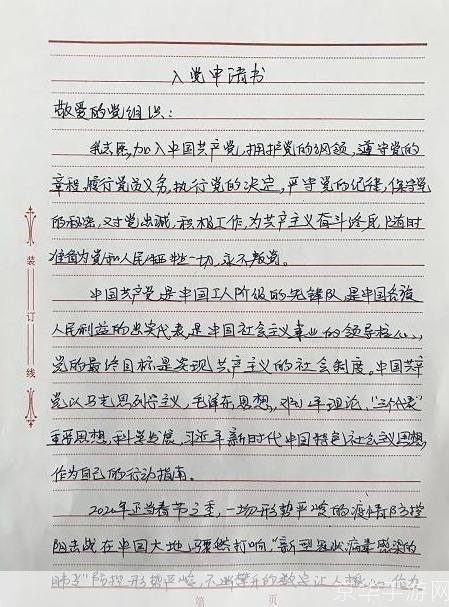 入党申请书
敬爱的党组织：
我志愿加入中国共产党，拥护党的纲领，遵守党的
章程，履行党员义务，执行党的决定，严守党的纪律，保守党
的秘密，对党忠诚，积极工作，为共产主义奋斗终身，随时
准备为党和人民牺牲一切，永不叛党。
中国共产党是中国工人阶级的先锋队，是中国各族
人民利益的忠实代表，是中国社会主义事业的领导核心，
党的最终目标是实现共产主义的社会制度。中国共产
党以马克思列宁主义，毛泽东思想，邓小平理论，"三个代表"
重要思想，科学发展，习近平新时代中国特色社会主义思想，
作为自己的行动指南。
2020年正当春节之季，一场形势严峻的疫情防控
阻击战在中国大地骤然打响，"新型冠状病毒感染的
肺炎"防控形势严峻，不断攀升的数字让人揪心，作为
装
订
线
第 页
京华手游网